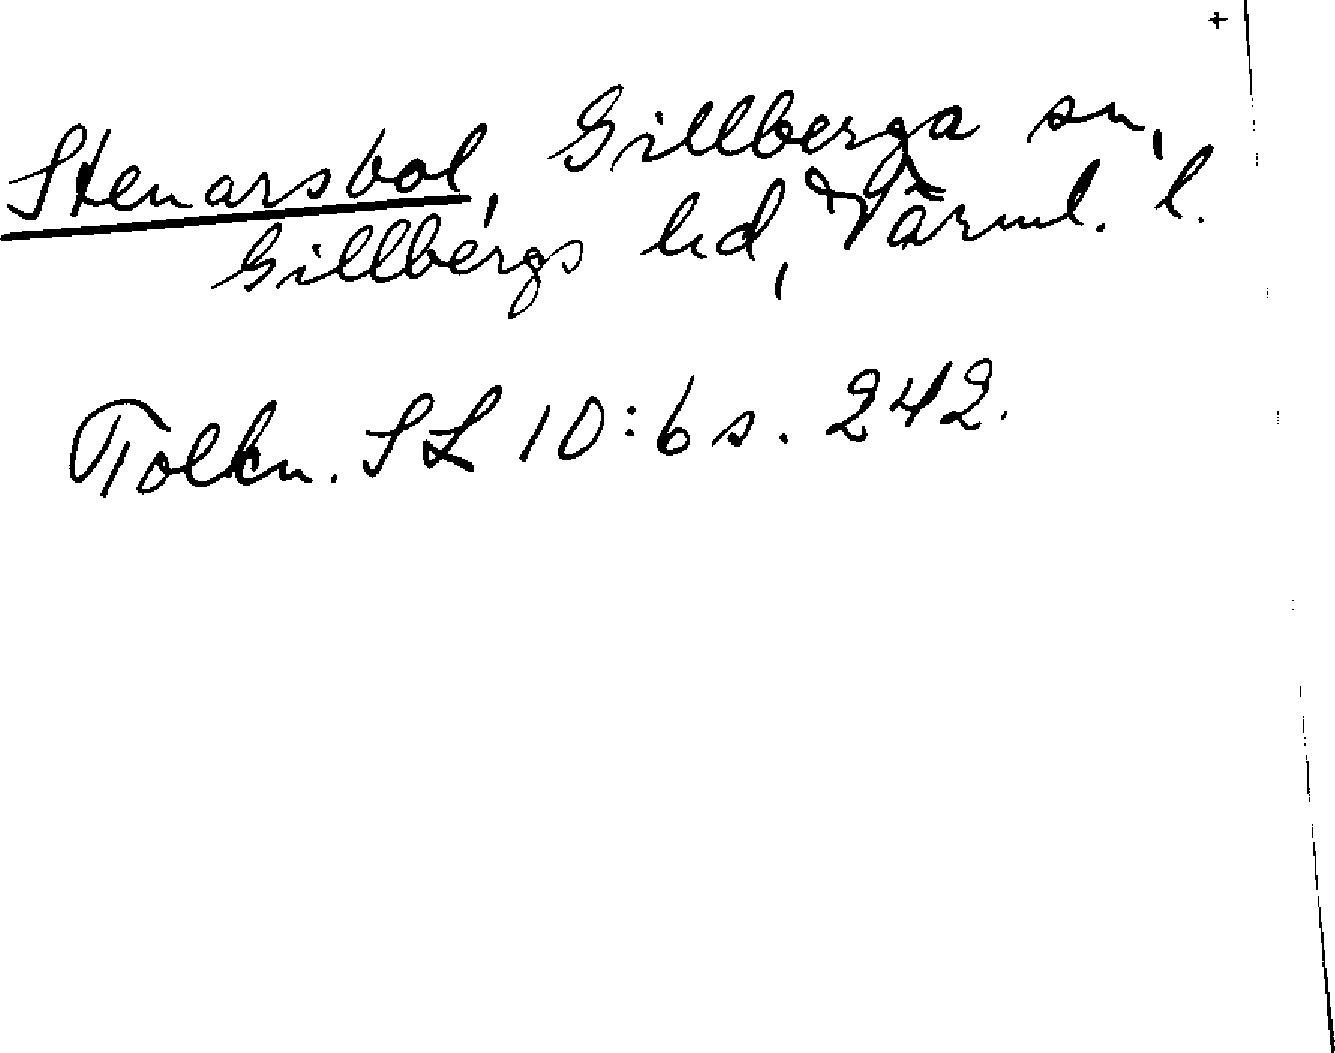 Stenarsbol, Gillberga sn,
Gillbergs hd, Värml. l.
Tolkn. SL 10:6 s. 242.